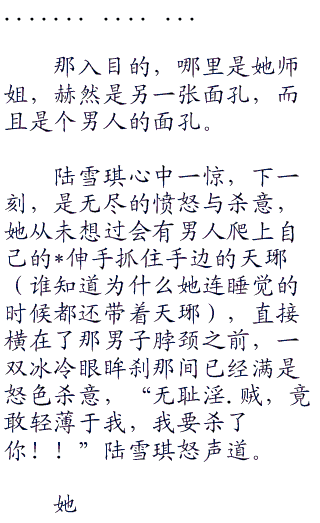 ······· ···· ···
那入目的，哪里是她师
姐，赫然是另一张面孔，而
且是个男人的面孔。
陆雪琪心中一惊，下一
刻，是无尽的愤怒与杀意，
她从未想过会有男人爬上自
己的*伸手抓住手边的天琊
（谁知道为什么她连睡觉的
时候都还带着天琊），直接
横在了那男子脖颈之前，一
双冰冷眼眸刹那间已经满是
怒色杀意，“无耻淫.贼，竟
敢轻薄于我，我要杀了
你！！”陆雪琪怒声道。
她